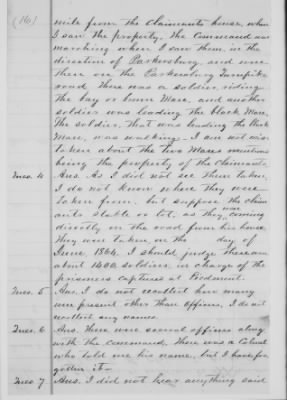 (16)
mile from the Claimants house, when
I saw the property, the Command was
marching when I saw them, in the
direction of Parkersburg, and were
then on the Parkersburg Turnpike
road. There was a soldier, riding
the bay or brown Mare, and another
soldier was leading the black Mare,
The soldier, that was leading the black
Mare, was walking. I am not
taken about the two Mares mentioned
being the property of the Claimants.
Ques. 4 Ans. As I did not see them taken,
I do not know where they were
taken from, but suppose the Claim
ants stable or lot, as they were coming
directly on the road from his house.
They were taken, on the day of
June 1864. I should judge there was
about 1400 soldiers, in charge of the
prisoners captured at Piedmont.
Ques. 5 Ans. I do not recollect how many
were present other than officers, I do not
recollect any names.
Ques. 6 Ans. There were several officers along
with the command. There was a Colonel
who told me his name, but I have for
gotten it.
Ques. 7 Ans. I did not hear anything said